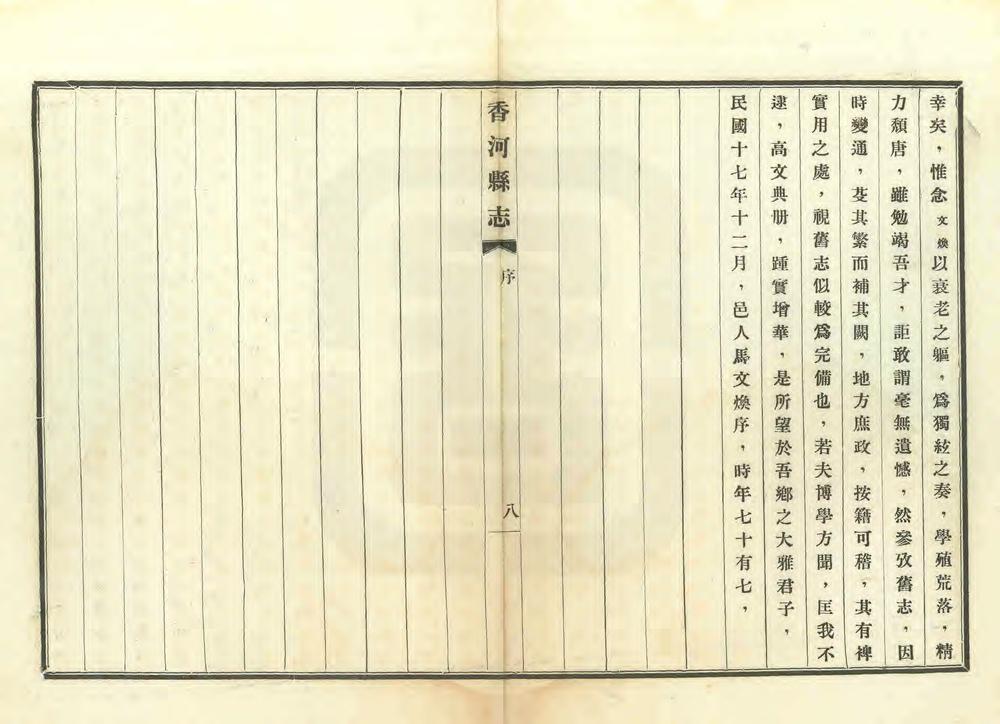 幸矣，惟念文煥以衰老之軀，爲獨絃之奏，學殖荒落，精
力頹唐，雖勉竭吾才，詎敢謂毫無遺憾，然參攷舊志，因
時變通，芟其繁而補其闕，地方庶政，按籍可稽，其有裨
實用之處，視舊志似較爲完備也，若夫博學方聞，匡我不
逮，高文典册，踵實增華，是所望於吾鄉之大雅君子，
民國十七年十二月，邑人馬文煥序，時年七十有七，
香河縣志
序
八